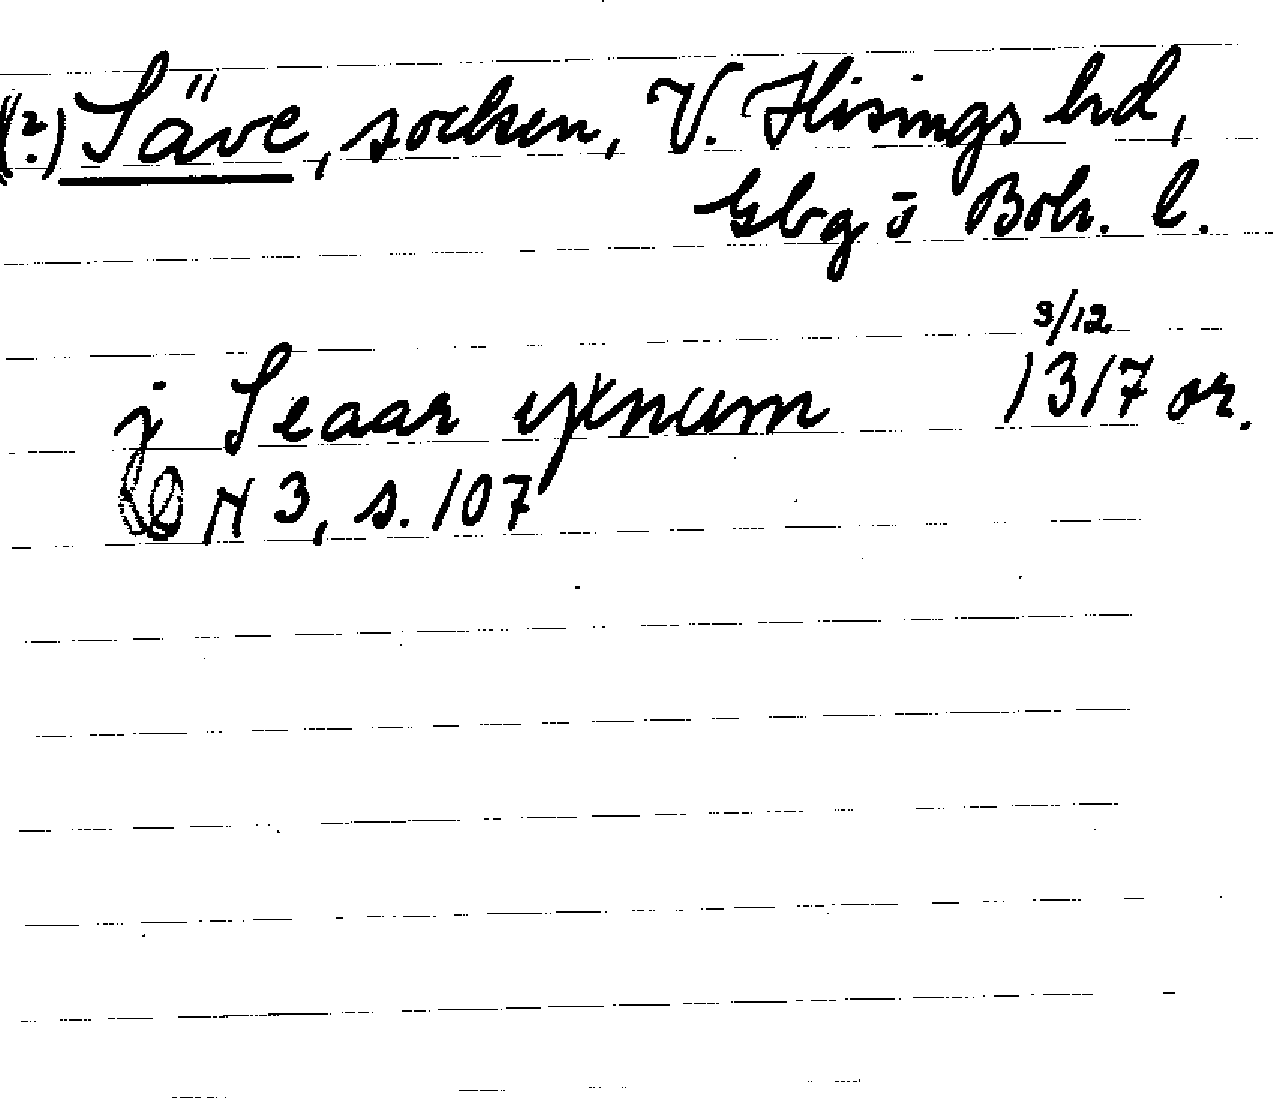 (?) Säve, socken, V. Hisings hd,
Gbg o Boh. l.
3/12
j Seaar yxnum 1317 or.
DN 3, s. 107